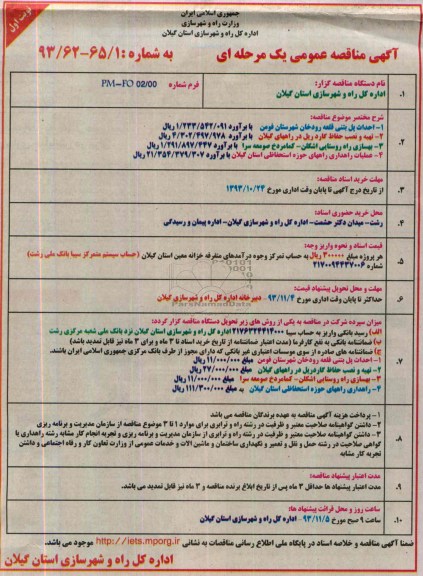 جمهوری اسلامی ایران
وزارت راه و شهرسازی
اداره کل راه و شهرسازی استان گیلان
نوبت اول
آگهی مناقصه عمومی یک مرحله ای به شماره : ۹۳/۶۲-۶۵/۱
۱. نام دستگاه مناقصه گزار: فرم شماره PM-FO 02/00
اداره کل راه و شهرسازی استان گیلان
۲. شرح مختصر موضوع مناقصه:
۱- احداث پل بتنی قلعه رودخان شهرستان فومن با برآورد ۱/۲۳۳/۵۴۲/۰۹۱ ریال
۲- تهیه و نصب حفاظ گاردریل در راههای گیلان با برآورد ۴/۳۰۲/۴۹۷/۹۷۸ ریال
۳- بهسازی راه روستایی اشگلن- کمامردخ صومعه سرا با برآورد ۱/۲۹۱/۸۹۷/۴۴۷ ریال
۴- عملیات راهداری راههای حوزه استحفاظی استان گیلان با برآورد ۲۱/۳۵۴/۳۷۹/۳۰۷ ریال
۳. مهلت خرید اسناد مناقصه:
از تاریخ درج آگهی تا پایان وقت اداری مورخ ۱۳۹۳/۱۰/۲۴
۴. محل خرید حضوری اسناد:
رشت- میدان دکتر حشمت- اداره کل راه و شهرسازی گیلان- اداره پیمان و رسیدگی
۵. قیمت اسناد و نحوه واریز وجه:
هر پروژه مبلغ ۳۰۰۰۰۰ ریال به حساب تمرکز وجوه درآمدهای متفرقه خزانه معین استان گیلان (حساب سیستم متمرکز سیبا بانک ملی رشت)
شماره ۲۱۷۰۰۹۴۴۳۷۰۰۶
۶. مهلت و محل تحویل پیشنهاد قیمت:
حداکثر تا پایان وقت اداری مورخ ۹۳/۱۱/۴ دبیرخانه اداره کل راه و شهرسازی گیلان
۷. میزان سپرده شرکت در مناقصه به یکی از روش های زیر تحویل دستگاه مناقصه گزار گردد:
الف) رسید بانکی واریز به حساب سیبا ۲۱۷۶۳۴۴۴۱۴۰۰۰ اداره کل راه و شهرسازی استان گیلان نزد بانک ملی شعبه مرکزی رشت
ب) ضمانتنامه بانکی به نفع کارفرما (مدت اعتبار ضمانتنامه از تاریخ خرید اسناد تا ۳ ماه و برای ۳ ماه نیز قابل تمدید باشد)
ج) ضمانتنامه های صادره از سوی موسسات اعتباری غیر بانکی که دارای مجوز از طرف بانک مرکزی جمهوری اسلامی ایران باشند.
۱- احداث پل بتنی قلعه رودخان شهرستان فومن مبلغ ۱۱/۰۰۰/۰۰۰ ریال
۲- تهیه و نصب حفاظ گاردریل در راههای گیلان مبلغ ۲۷/۰۰۰/۰۰۰ ریال
۳- بهسازی راه روستایی اشگلن- کمامردخ صومعه سرا مبلغ ۱۱/۰۰۰/۰۰۰ ریال
۴- راهداری راههای حوزه استحفاظی استان گیلان به مبلغ ۱۱۱/۳۰۰/۰۰۰ ریال
۸. ۱- پرداخت هزینه آگهی مناقصه به عهده برندگان مناقصه می باشد
۲- داشتن گواهینامه صلاحیت معتبر و ظرفیت در رشته راه و ترابری برای موارد ۱ تا ۳ موضوع مناقصه از سازمان مدیریت و برنامه ریزی
۳- داشتن گواهینامه صلاحیت معتبر و ظرفیت در رشته راه و ترابری از سازمان مدیریت و برنامه ریزی و تجربه انجام کار مشابه رشته راهداری یا
گواهی صلاحیت در رشته حمل و نقل و تعمیر و نگهداری ساختمان و ماشین الات و خدمات عمومی از وزارت تعاون کار و رفاه اجتماعی و داشتن
تجربه کار مشابه
۹. مدت اعتبار پیشنهاد مناقصه:
مدت اعتبار پیشنهاد ها حداقل ۳ ماه پس از تاریخ ابلاغ برنده مناقصه و ۳ ماه نیز قابل تمدید می باشد.
۱۰. ساعت روز و محل قرائت پیشنهاد ها:
ساعت ۹ صبح مورخ ۹۳/۱۱/۵ اداره کل راه و شهرسازی استان گیلان
ضمنا آگهی مناقصه و خلاصه اسناد در پایگاه ملی اطلاع رسانی مناقصات به نشانی http://iets.mporg.ir موجود می باشد.
اداره کل راه و شهرسازی استان گیلان
ParsNamadData